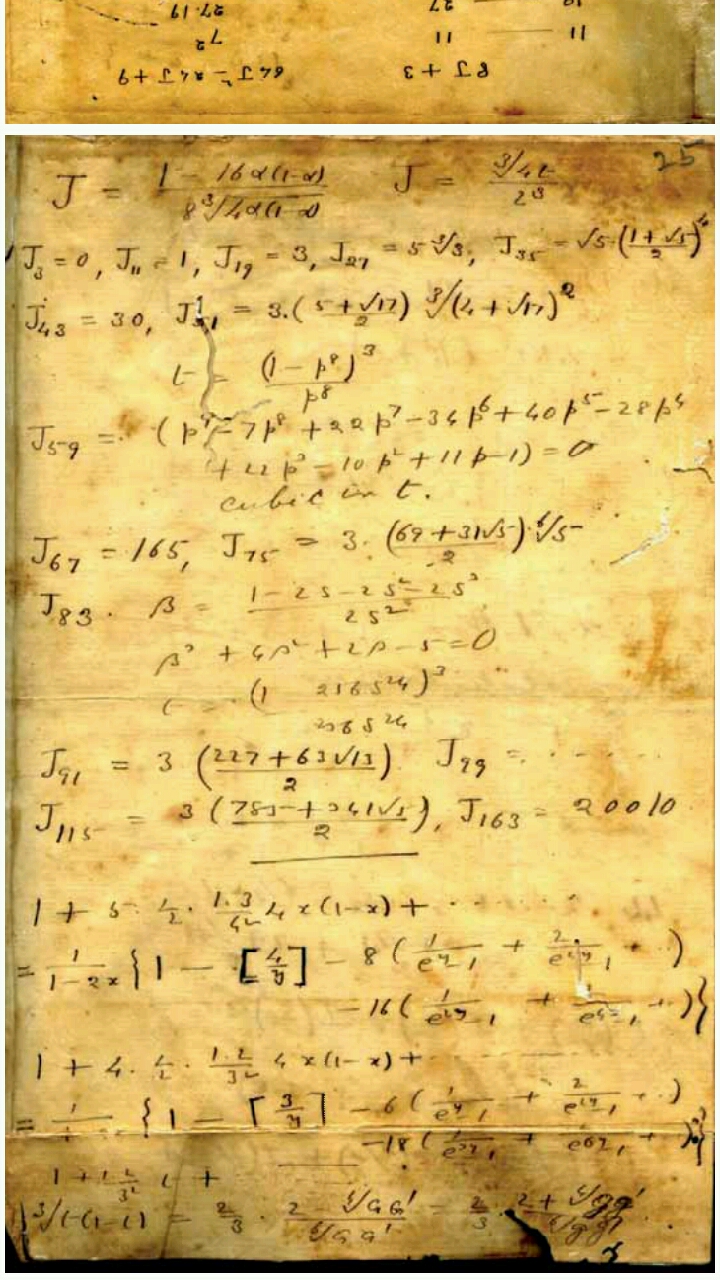 64J² − 24J + 9 8J + 3
72 11 — 11
27·19 27
25
J = (1 − 16α(1−α)) / (8 ∛(4α(1−α))) J = ∛(4t) / 2³
J₃ = 0, J₁₁ = 1, J₁₉ = 3, J₂₇ = 5 ∛3, J₃₅ = √5·((1+√5)/2)⁴
J₄₃ = 30, J₅₁ = 3·((5+√17)/2) ∛(4+√17)²
t = (1 − p⁸)³ / p⁸
J₅₉ = (p⁹ − 7p⁸ + 22p⁷ − 34p⁶ + 40p⁵ − 28p⁴
+ 22p³ − 10p² + 11p − 1) = 0
cubic in t.
J₆₇ = 165, J₇₅ = 3·((69+31√5)/2)·⁶√5
J₈₃. β = (1 − 2s − 2s² − 2s³) / 2s²
β³ + 4β² + 2β − 5 = 0
t = (1 256s²⁴)³ / 256s²⁴
J₉₁ = 3 ((227+63√13)/2) J₉₉ = · · · · ·
J₁₁₅ = 3 ((785+341√5)/2), J₁₆₃ = 20010
1 + 5·½·(1·3/4²) 4x(1−x) + · · · · ·
= 1/(1−2x) {1 − [4/y] − 8(1/(eʸ−1) + 2/(e²ʸ−1) + ··)
− 16(1/(e²ʸ−1) + /(e⁴ʸ−1) + ··)}
1 + 4·½·(1·2/3²) 4x(1−x) + · · · · ·
= {1 − [3/y] − 6(1/(eʸ−1) + 2/(e²ʸ−1) + ··)
− 18(1/(e³ʸ−1) + /(e⁶ʸ−1) + ··)}
1 + (1·2/3²) t +
∛(t(1−t)) = 2/3 · (2 − GG′)/(GG′) = 2/3 · (2 + gg′)/(gg′)